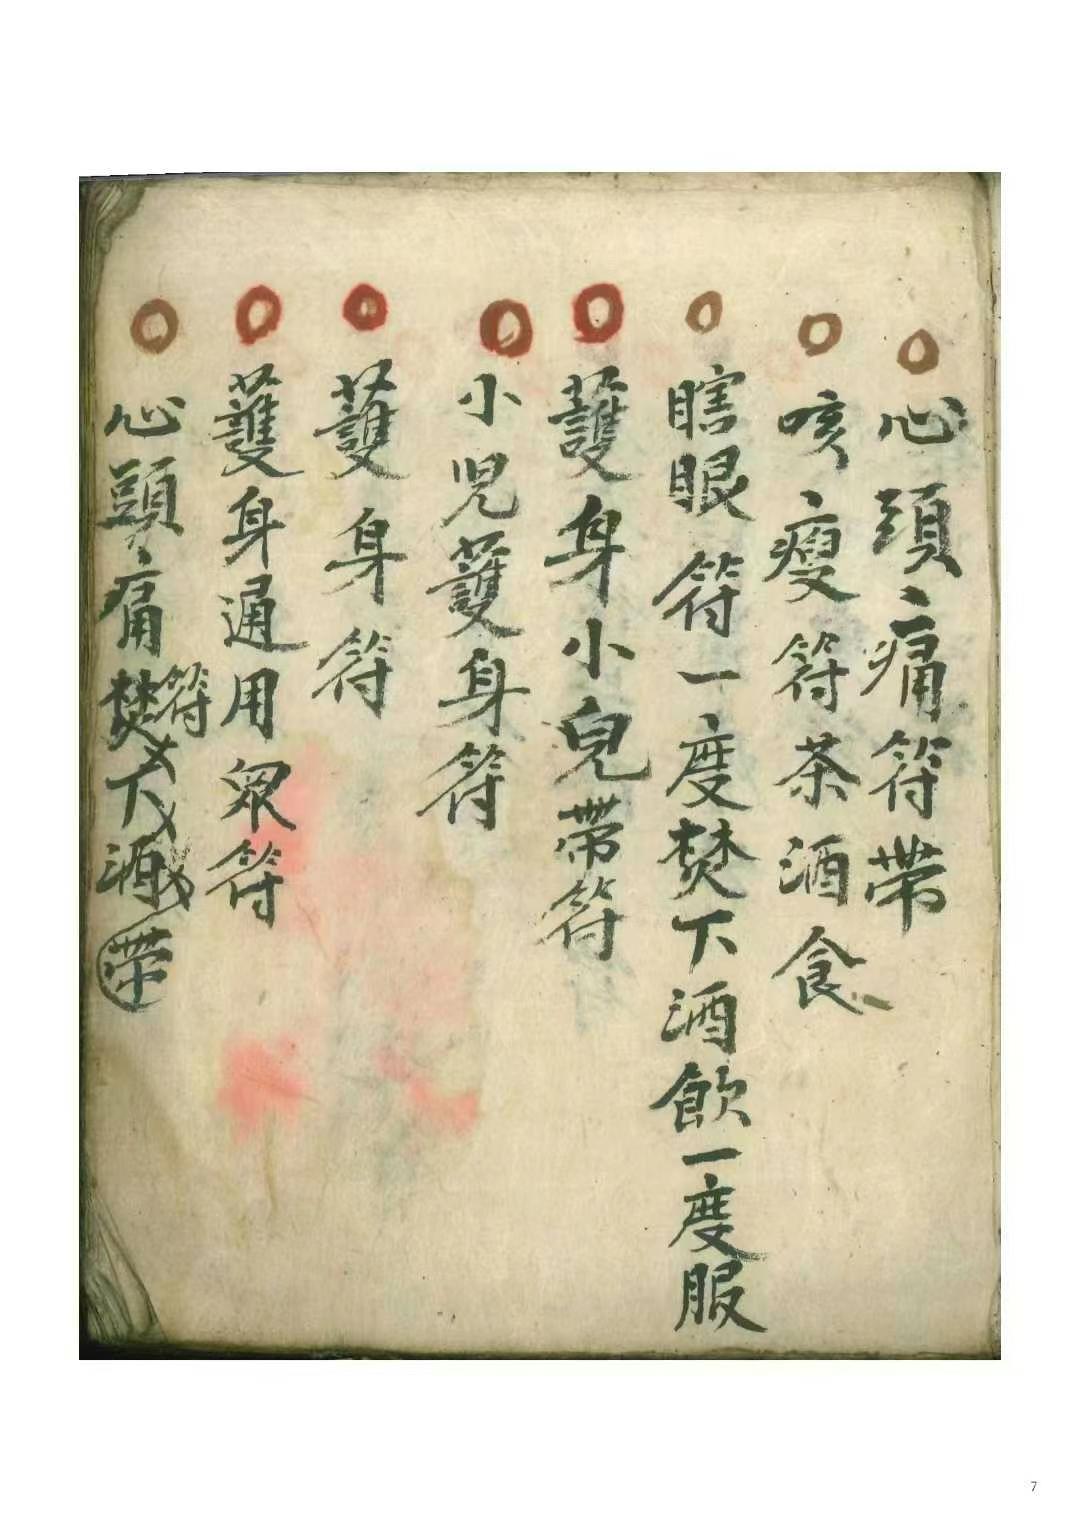 心頭痛符帶
咳瘦符茶酒食
瞎眼符一度焚下酒飲一度服
護身小兒帶符
小児護身符
護身符
護身通用眾符
心頭痛焚下酒符帶
7